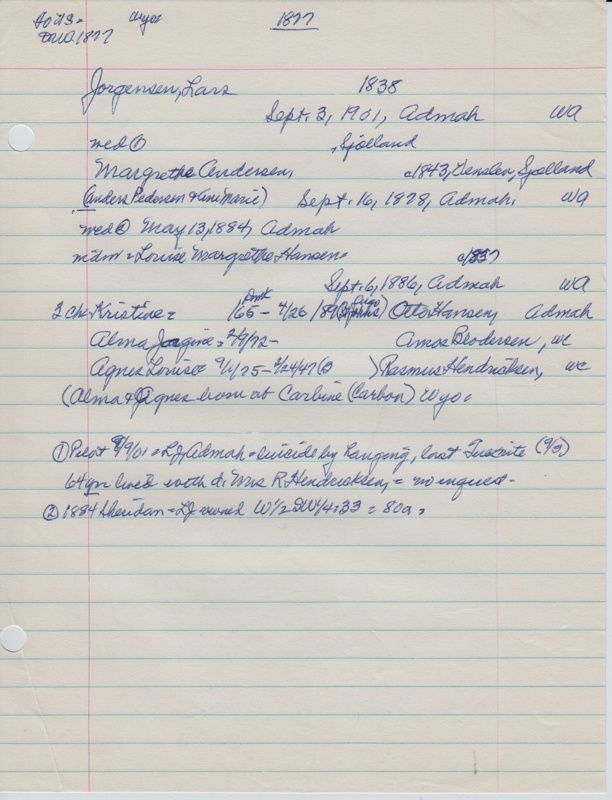 Wyo 1877
DMA 1877
Jorgensen, Lars 1838
Sept. 3, 1901, Admah WA
med ① , Sjolland
Margrethe Andersen, c1843, Sjolland
(Anders Pedersen & Ane Marie) Sept. 16, 1878, Admah, WA
med ② May 13, 1884, Admah
mdm = Louise Margrethe Hansen = c1837
Sept. 6, 1886, Admah WA
3 ch = Kristine = Dmk /65 - 4/26/89 Otto Hansen, Admah
Alma Jorgine = 2/9/72 - Amos Brodersen, WC
Agnes Louise = 9/1/75 - 2/24/47 ) Rasmus Hendricksen, WC
(Alma & Agnes born at Carbine (Carbon) Wyo =
① Pilot 9/9/01 = LJ, Admah = suicide by hanging, last Tuesite (9/3)
64 yrs lived with d. Mrs R. Hendricksen, = no inquest -
② 1884 Sheridan = LJ owned W1/2 SW1/4 : 33 = 80a =